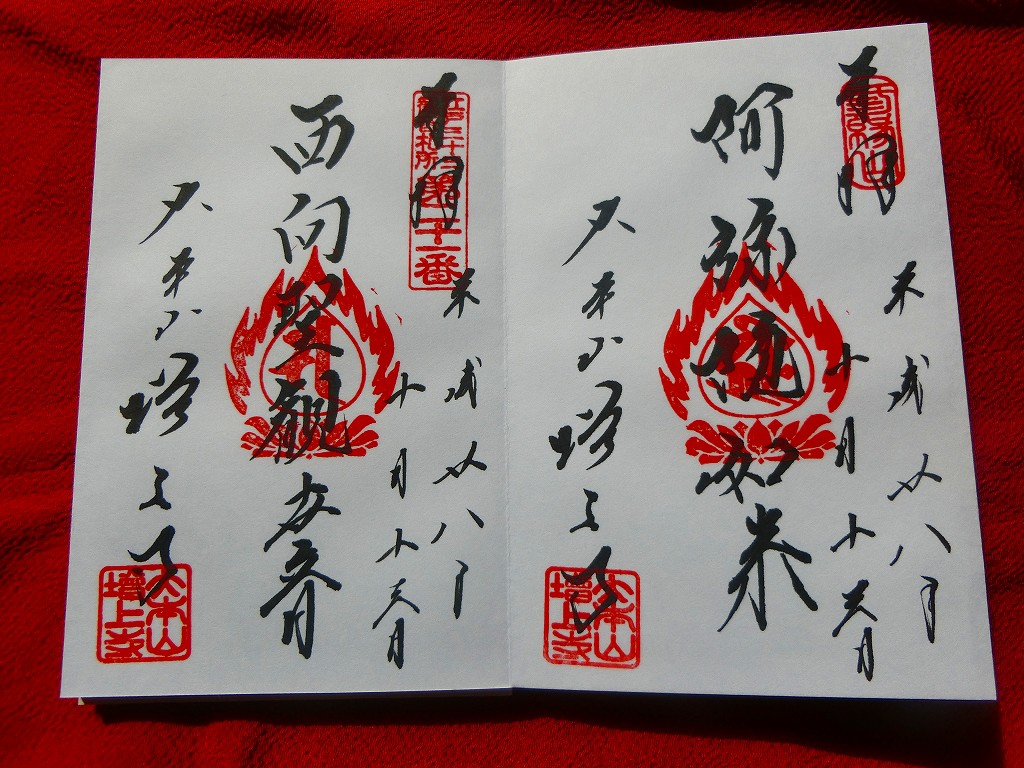 奉拝
平成廿八年
十月十
阿弥陀如来
大本山
増上寺
大本山
増上寺
奉拝
江戸三十三
観音札所
第二十一番
平成廿八年
十月十
西向聖観世音
大本山
増上寺
大本山
増上寺